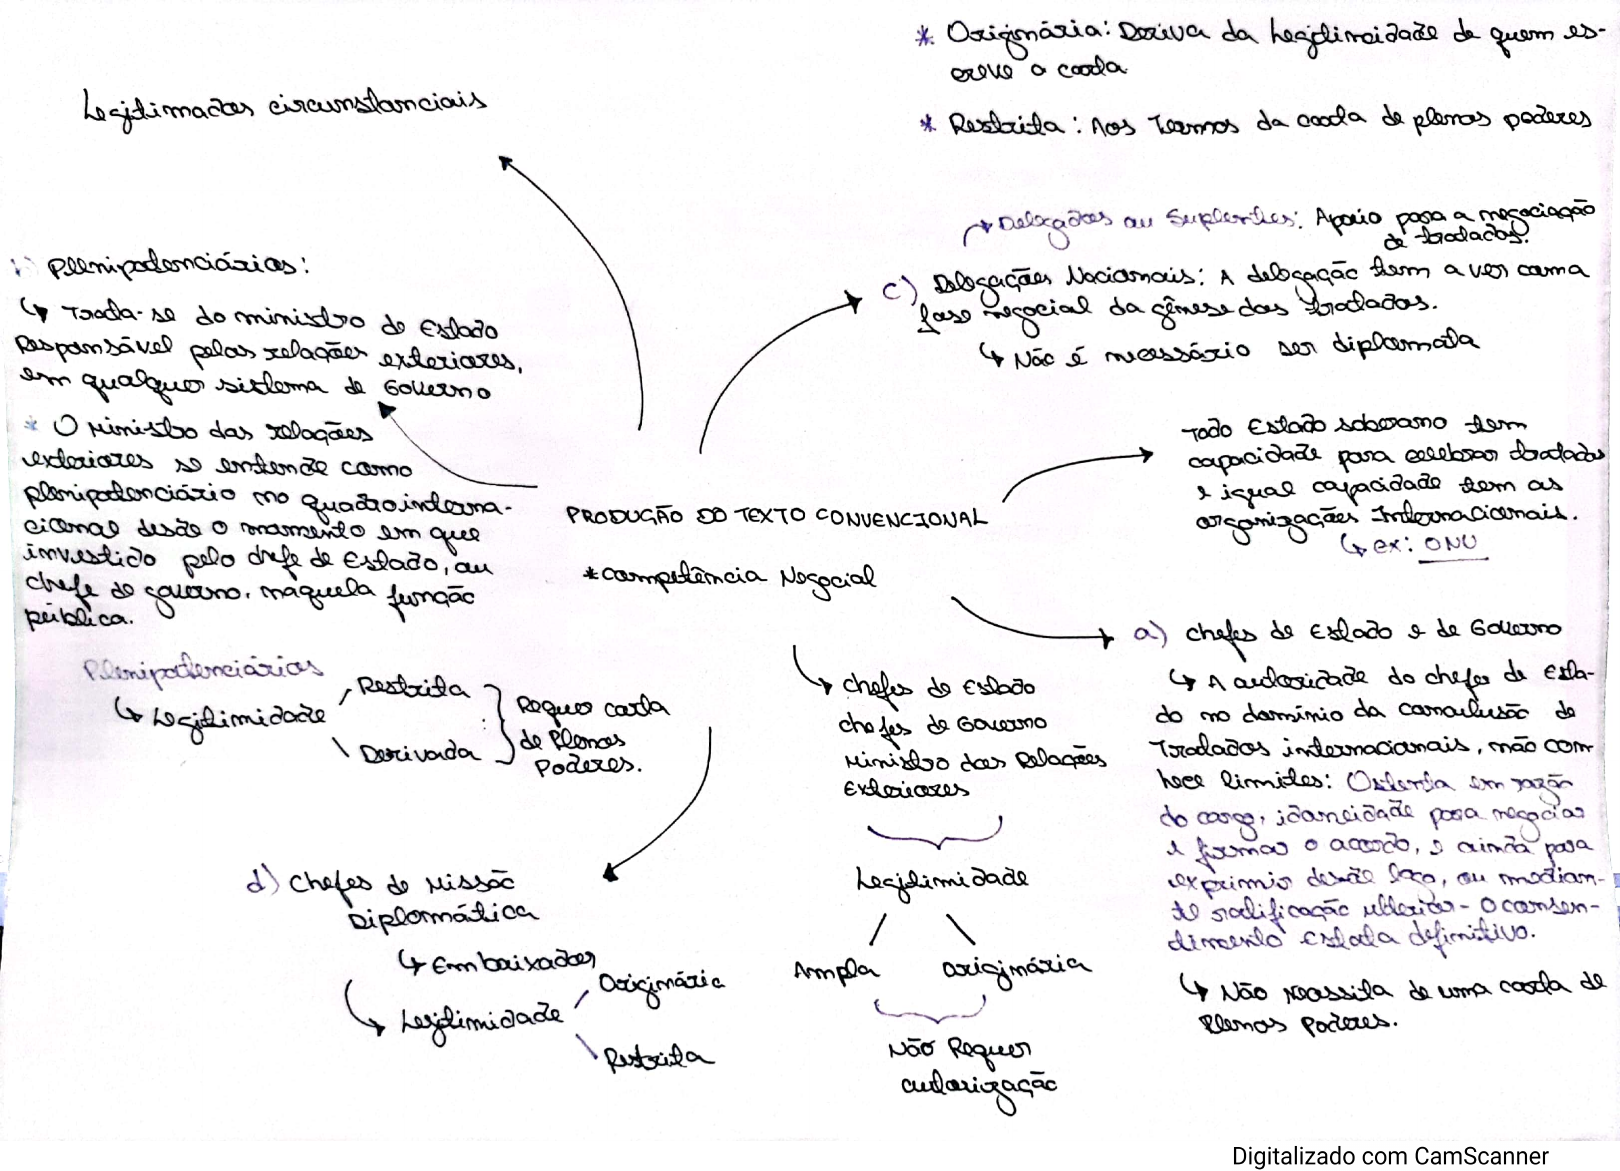 * Originária: Deriva da legitimidade de quem es-
creve a carta
* Restrita: Aos Termos da carta de plenos poderes
Legitimados circunstanciais
Delegados ou Suplentes: Apoio para a negociação
de tratados.
c) Delegações Nacionais: A delegação tem a ver com a
fase negocial da gênese dos tratados.
↳ Não é necessário ser diplomata
Plenipotenciários:
↳ Trata-se do ministro de Estado
Responsável pelas relações exteriores,
em qualquer sistema de Governo
* O Ministro das relações
exteriores se entende como
plenipotenciário no quadro interna-
cional desde o momento em que
investido pelo chefe de Estado, ou
chefe de governo, naquela função
pública.
Todo Estado soberano tem
capacidade para celebrar tratados
e igual capacidade tem as
organizações Internacionais.
↳ ex: ONU
PRODUÇÃO DO TEXTO CONVENCIONAL
*Competência Negocial
a) Chefes de Estado e de Governo
↳ A autoridade do chefe de Esta-
do no domínio da conclusão de
Tratados internacionais, não con
hece limites: Ostenta em razão
do cargo, idoneidade para negociar
e firmar o acordo, e ainda para
exprimir desde logo, ou median-
te ratificação ulterior - O consen-
timento estatal definitivo.
↳ Não Necessita de uma carta de
Plenos Poderes.
Plenipotenciários
↳ Legitimidade
Restrita
Derivada
Requer carta
de Plenos
Poderes.
↳ Chefes de Estado
Chefes de Governo
Ministro das Relações
Exteriores
Legitimidade
Ampla originária
Não Requer
autorização
d) Chefes de Missão
Diplomática
↳ Embaixador
↳ Legitimidade
Originária
Restrita
Digitalizado com CamScanner